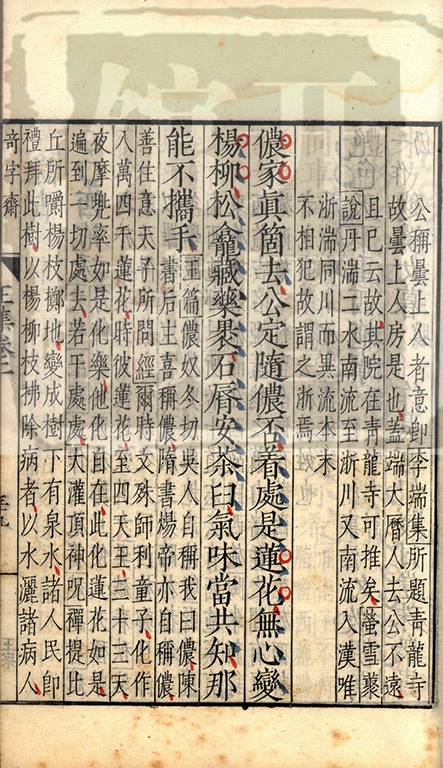 公稱曇上人者意卽李端集所題靑龍寺
故曇上人房是也蓋端大曆人去公不遠
且巳云故其院在靑龍寺可推矣螢雪叢
說丹湍二水南流至浙川又南流入漢唯
浙湍同川而異流本末
不相犯故謂之浙焉
儂家眞箇去公定隨儂否着處是蓮花無心變
楊柳松龕藏藥裹石脣安茶臼氣味當共知那
能不攜手
玉篇儂奴冬切吳人自稱我曰儂陳
書后主喜稱儂隋書楊帝亦自稱儂
善住意天子所問經爾時文殊師利童子化作
八萬四千蓮花時彼蓮花至四天王三十三天
夜摩兜率如是化樂他化自在此化蓮花如是
遍到一切處去若干處處大灌頂神呪禪提比
丘所嚼楊枝擲地變成樹下有泉水諸人民卽
禮拜此樹以楊柳枝拂除病者以水灑諸病人
奇字齋
王集卷二
三九